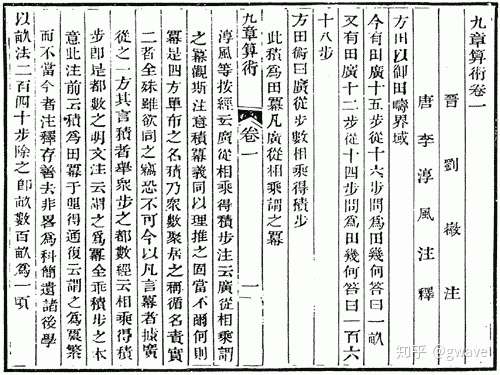 九章算術卷一
晉 劉徽 注
唐 李淳風 注釋
方田以御田疇界域
今有田廣十五步從十六步問爲田幾何答曰一畝
又有田廣十二步從十四步問爲田幾何答曰一百六
十八步
方田術曰廣從步數相乘得積步
此積爲田冪凡廣從相乘謂之冪
九章算術 卷一 一
淳風等按經云廣從相乘得積步注云廣從相乘謂
之冪觀斯注意積冪義同以理推之固當不爾何則
冪是四方單布之名積乃衆數聚居之稱循名責實
二者全殊雖欲同之竊恐不可今以凡言冪者據廣
從之一方其言積者舉衆步之都數經云相乘得積
步即是都數之明文注云謂之爲冪全乖積步之本
意此注前云積爲田冪于理得通復云謂之爲冪繁
而不當今者注釋存善去非畧爲科簡遺諸後學
以畝法二百四十步除之即畝數百畝爲一頃
知乎 @gwavel